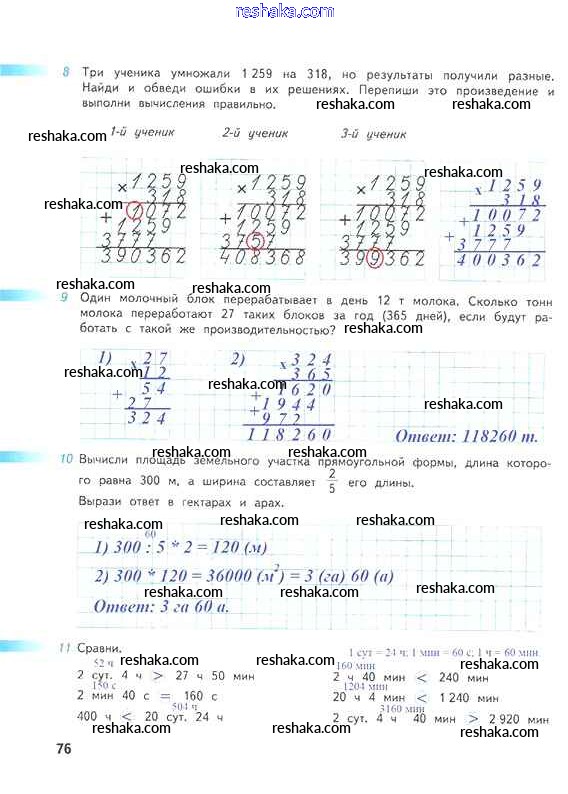 reshaka.com
8 Три ученика умножали 1 259 на 318, но результаты получили разные.
Найди и обведи ошибки в их решениях. Перепиши это произведение и
выполни вычисления правильно. reshaka.com reshaka.com
reshaka.com 1-й ученик 2-й ученик 3-й ученик
reshaka.com reshaka.com
×1259 ×1259 ×1259 ×1259
reshaka.com 318 318 318 318
+10072 +10072 +10072 +10072
1259 1259 1259 +1259
3777 3757 3777 3777
390362 408368 399362 400362
reshaka.com reshaka.com
9 Один молочный блок перерабатывает в день 12 т молока. Сколько тонн
молока переработают 27 таких блоков за год (365 дней), если будут ра-
ботать с такой же производительностью? reshaka.com
1) ×27 2) ×324
reshaka.com 12 365
reshaka.com
+54 +1620
27 +1944 reshaka.com
324 972
118260 Ответ: 118260 т.
reshaka.com reshaka.com
10 Вычисли площадь земельного участка прямоугольной формы, длина которо-
го равна 300 м, а ширина составляет 2/5 его длины.
Вырази ответ в гектарах и арах.
reshaka.com reshaka.com reshaka.com
60
1) 300 : 5 * 2 = 120 (м)
2) 300 * 120 = 36000 (м²) = 3 (га) 60 (а)
reshaka.com reshaka.com
Ответ: 3 га 60 а.
reshaka.com reshaka.com
11 Сравни. 1 сут = 24 ч; 1 мин = 60 с; 1 ч = 60 мин.
52 ч reshaka.com reshaka.com 160 мин reshaka.com
2 сут. 4 ч > 27 ч 50 мин 2 ч 40 мин < 240 мин
150 с 1204 мин
2 мин 40 с = 160 с 20 ч 4 мин < 1 240 мин
504 ч 3160 мин
400 ч < 20 сут. 24 ч 2 сут. 4 ч 40 мин > 2 920 мин
reshaka.com reshaka.com reshaka.com
76